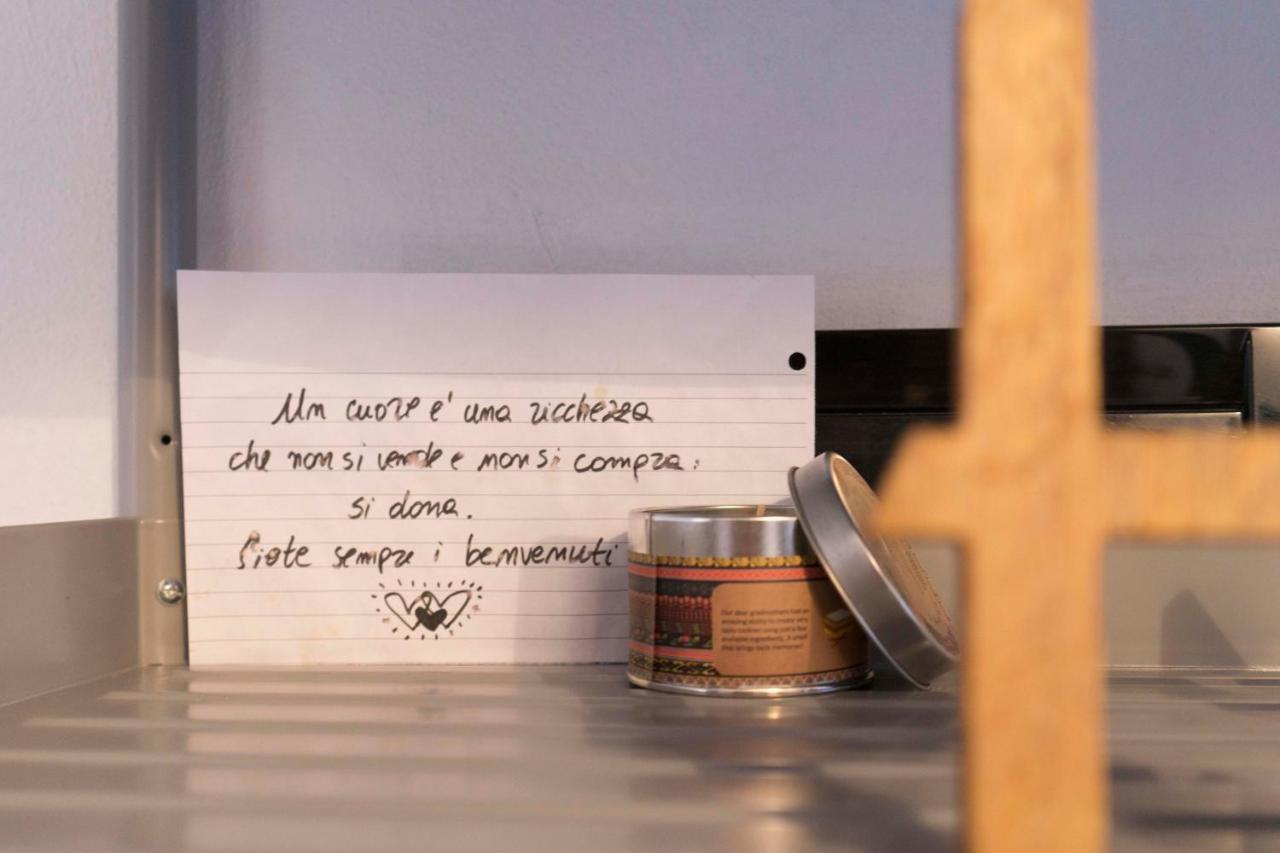 Un cuore e' una ricchezza
che non si vende e non si compra:
si dona.
Siate sempre i benvenuti
Our dear grandmothers had an
amazing ability to create very
tasty cookies using just a few
available ingredients. A smell
that brings back memories!